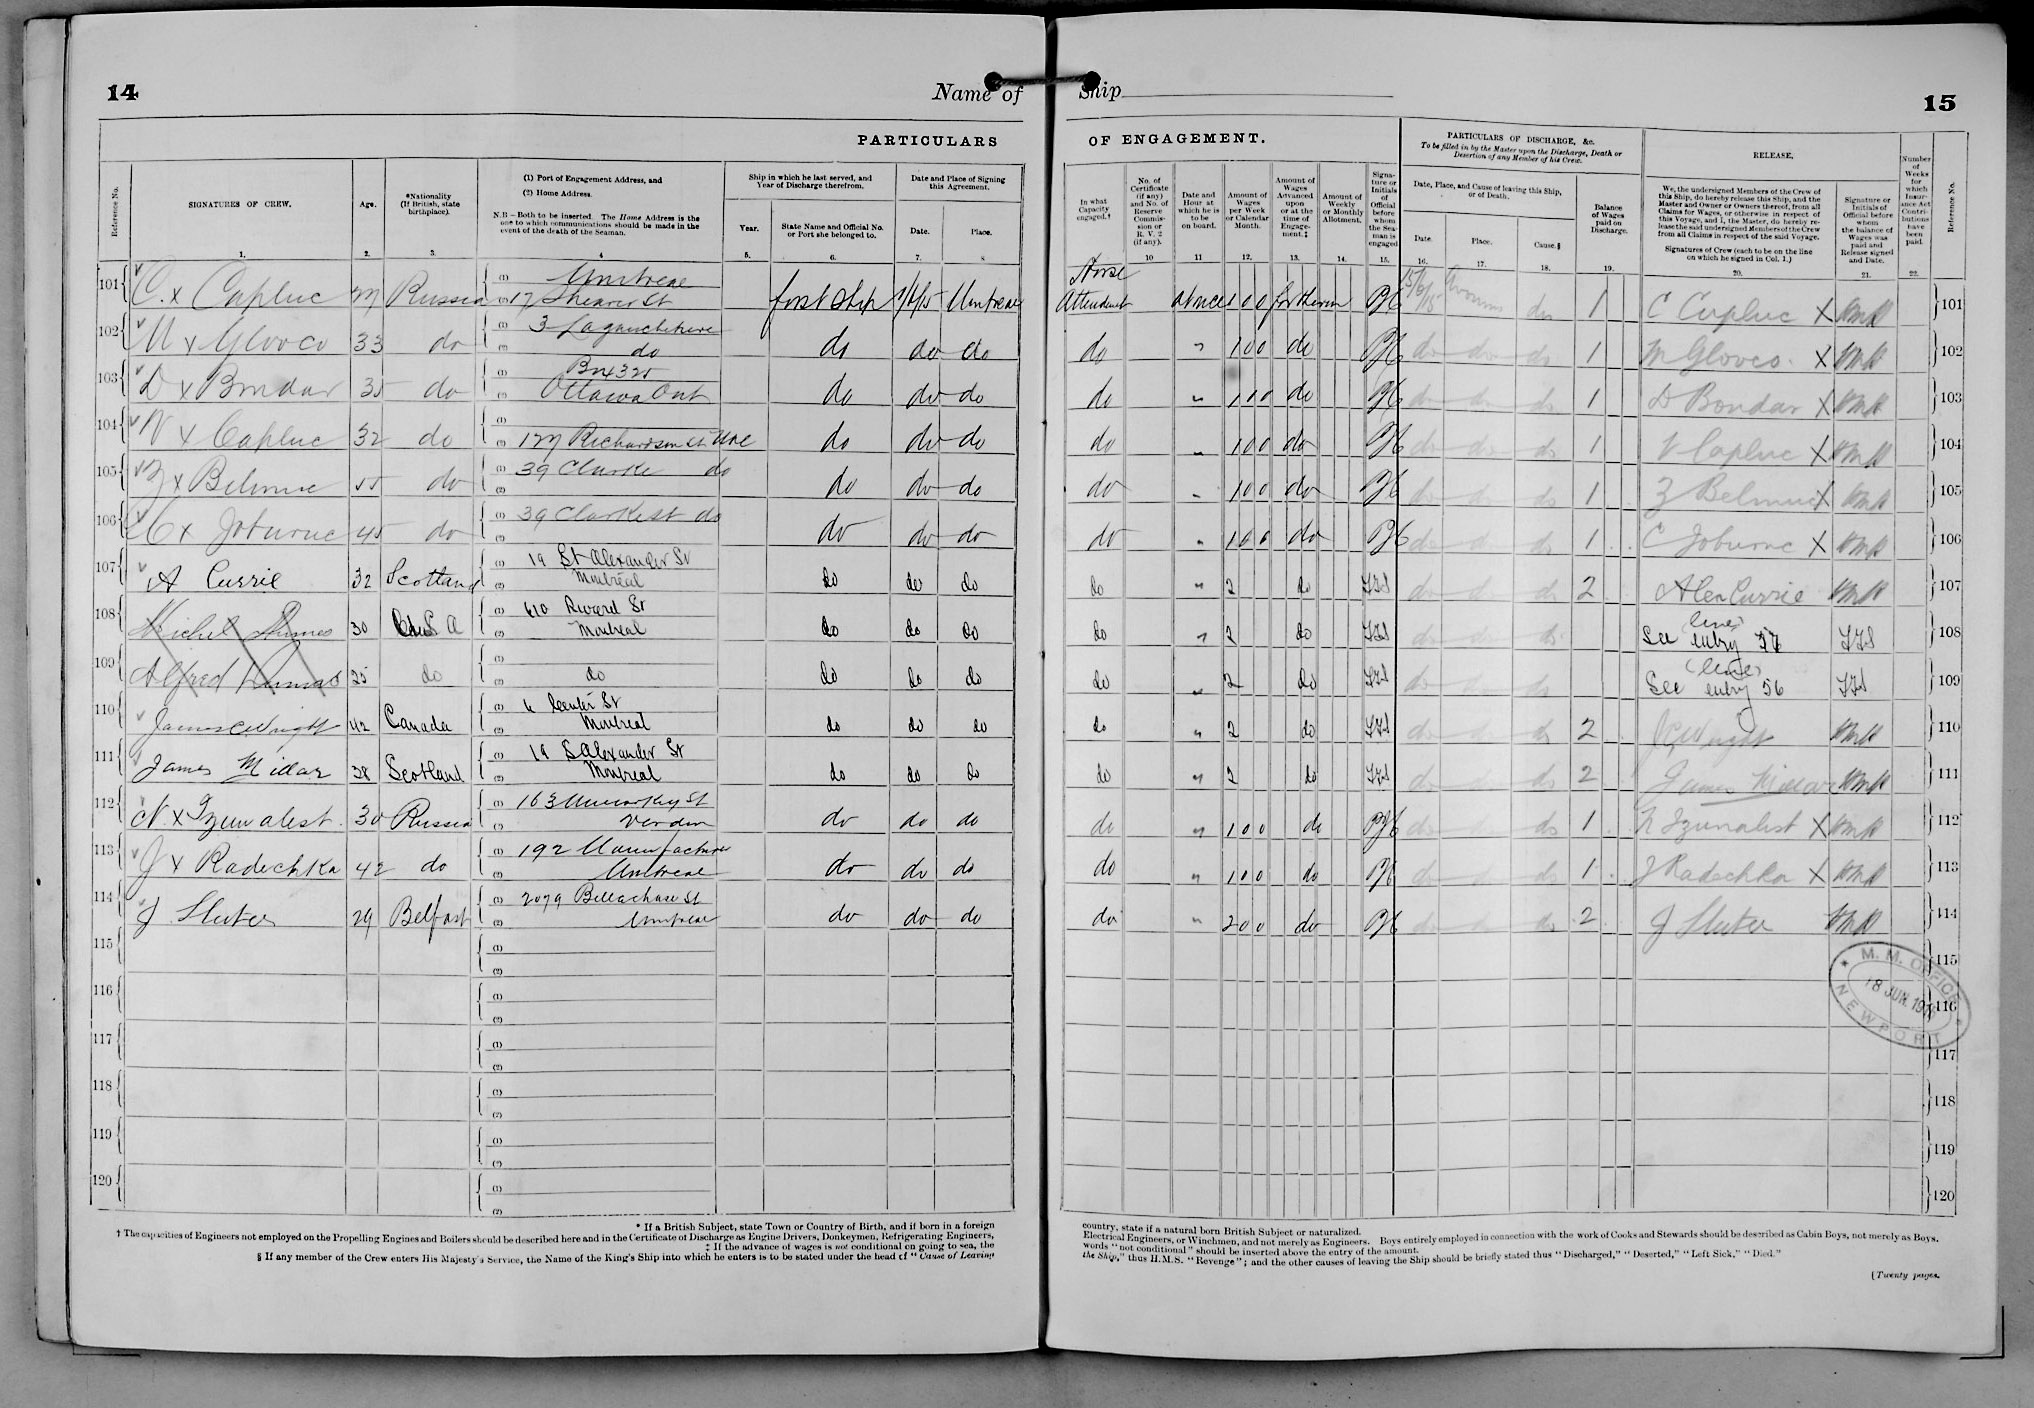 14
Name of
Ship
15
PARTICULARS
OF ENGAGEMENT.
PARTICULARS OF DISCHARGE, &c.
To be filled in by the Master upon the Discharge, Death or Desertion of any Member of his Crew.
RELEASE.
Reference No.
SIGNATURES OF CREW.
Age.
*Nationality (If British, state birthplace).
(1) Port of Engagement Address, and
(2) Home Address.
N.B - Both to be inserted. The Home Address is the one to which communications should be made in the event of the death of the Seaman.
Ship in which he last served, and Year of Discharge therefrom.
Year.
State Name and Official No. or Port she belonged to.
Date and Place of Signing this Agreement.
Date.
Place.
In what Capacity engaged.†
No. of Certificate (if any) and No. of Reserve Commission or R. V. 2 (if any).
Date and Hour at which he is to be on board.
Amount of Wages per Week or Calendar Month.
Amount of Wages Advanced upon or at the time of Engagement.‡
Amount of Weekly or Monthly Allotment.
Signature or Initials of Official before whom the Seaman is engaged
Date, Place, and Cause of leaving this Ship, or of Death.
Date.
Place.
Cause.§
Balance of Wages paid on Discharge.
We, the undersigned Members of the Crew of this Ship, do hereby release this Ship, and the Master and Owner or Owners thereof, from all Claims for Wages, or otherwise in respect of this Voyage, and I, the Master, do hereby release the said undersigned Members of the Crew from all Claims in respect of the said Voyage.
Signatures of Crew (each to be on the line on which he signed in Col. 1.)
Signature or Initials of Official before whom the balance of Wages was paid and Release signed and Date.
Number of Weeks for which Insurance Act Contributions have been paid.
Reference No.
1. 2. 3. 4 5. 6. 7. 8 10 11 12. 13. 14. 15. 16. 17. 18. 19. 20. 21. 22.
101 C. x Capluc Russia Montreal 17 Shearer St first ship Montreal Horse Attendant at once 100 do 1 C Capluc X 101
102 M x Glovco 33 do 3 Lagauchetiere do do do do do 100 do do do do 1 M Glovco X 102
103 D x Bondar 35 do Box 325 Ottawa Ont do do do do 100 do do do do 1 D Bondar X 103
104 V x Capluc 32 do 127 Richardson St do do do do 100 do do do do 1 V Capluc X 104
105 Z x Belmuc do 39 Clarke do do do do do 100 do do do do 1 Z Belmuc X 105
106 C x Joburuc 45 do 39 Clarke St do do do do do 100 do do do do 1 C Joburuc X 106
107 A Currie 32 Scotland 19 St Alexander St Montreal do do do do " 2 do do do do 2 Alex Currie 107
108 Michel Dumas 30 U S A 610 Rivard St Montreal do do do do " 2 do do do do See entry (line) 108
109 Alfred Dumas 25 do do do do do do " 2 do do do do See entry (line) 56 109
110 James C Wright 42 Canada 6 Center St Montreal do do do do " 2 do do do do 2 J C Wright 110
111 James Millar 28 Scotland 19 S Alexander St Montreal do do do do " 2 do do do do 2 James Millar 111
112 N x Izunalist 30 Russia 163 Verdun do do do do " 100 do do do do 1 N Izunalist X 112
113 J x Radechka 42 do 192 Manufacture Montreal do do do do " 100 do do do do 1 J Radechka X 113
114 J Sluter 29 Belfast 2079 Bellechase St Montreal do do do do " 200 do do do do 2 J Sluter 114
115 115
116 116
117 117
118 118
119 119
120 120
M. M. OFFICE
18 JUN. 191
NEWPORT
* If a British Subject, state Town or Country of Birth, and if born in a foreign country, state if a natural born British Subject or naturalized.
† The capacities of Engineers not employed on the Propelling Engines and Boilers should be described here and in the Certificate of Discharge as Engine Drivers, Donkeymen, Refrigerating Engineers, Electrical Engineers, or Winchmen, and not merely as Engineers. Boys entirely employed in connection with the work of Cooks and Stewards should be described as Cabin Boys, not merely as Boys.
‡ If the advance of wages is not conditional on going to sea, the words "not conditional" should be inserted above the entry of the amount.
§ If any member of the Crew enters His Majesty's Service, the Name of the King's Ship into which he enters is to be stated under the head of "Cause of Leaving the Ship," thus H.M.S. "Revenge"; and the other causes of leaving the Ship should be briefly stated thus "Discharged," "Deserted," "Left Sick," "Died."
[Twenty pages.